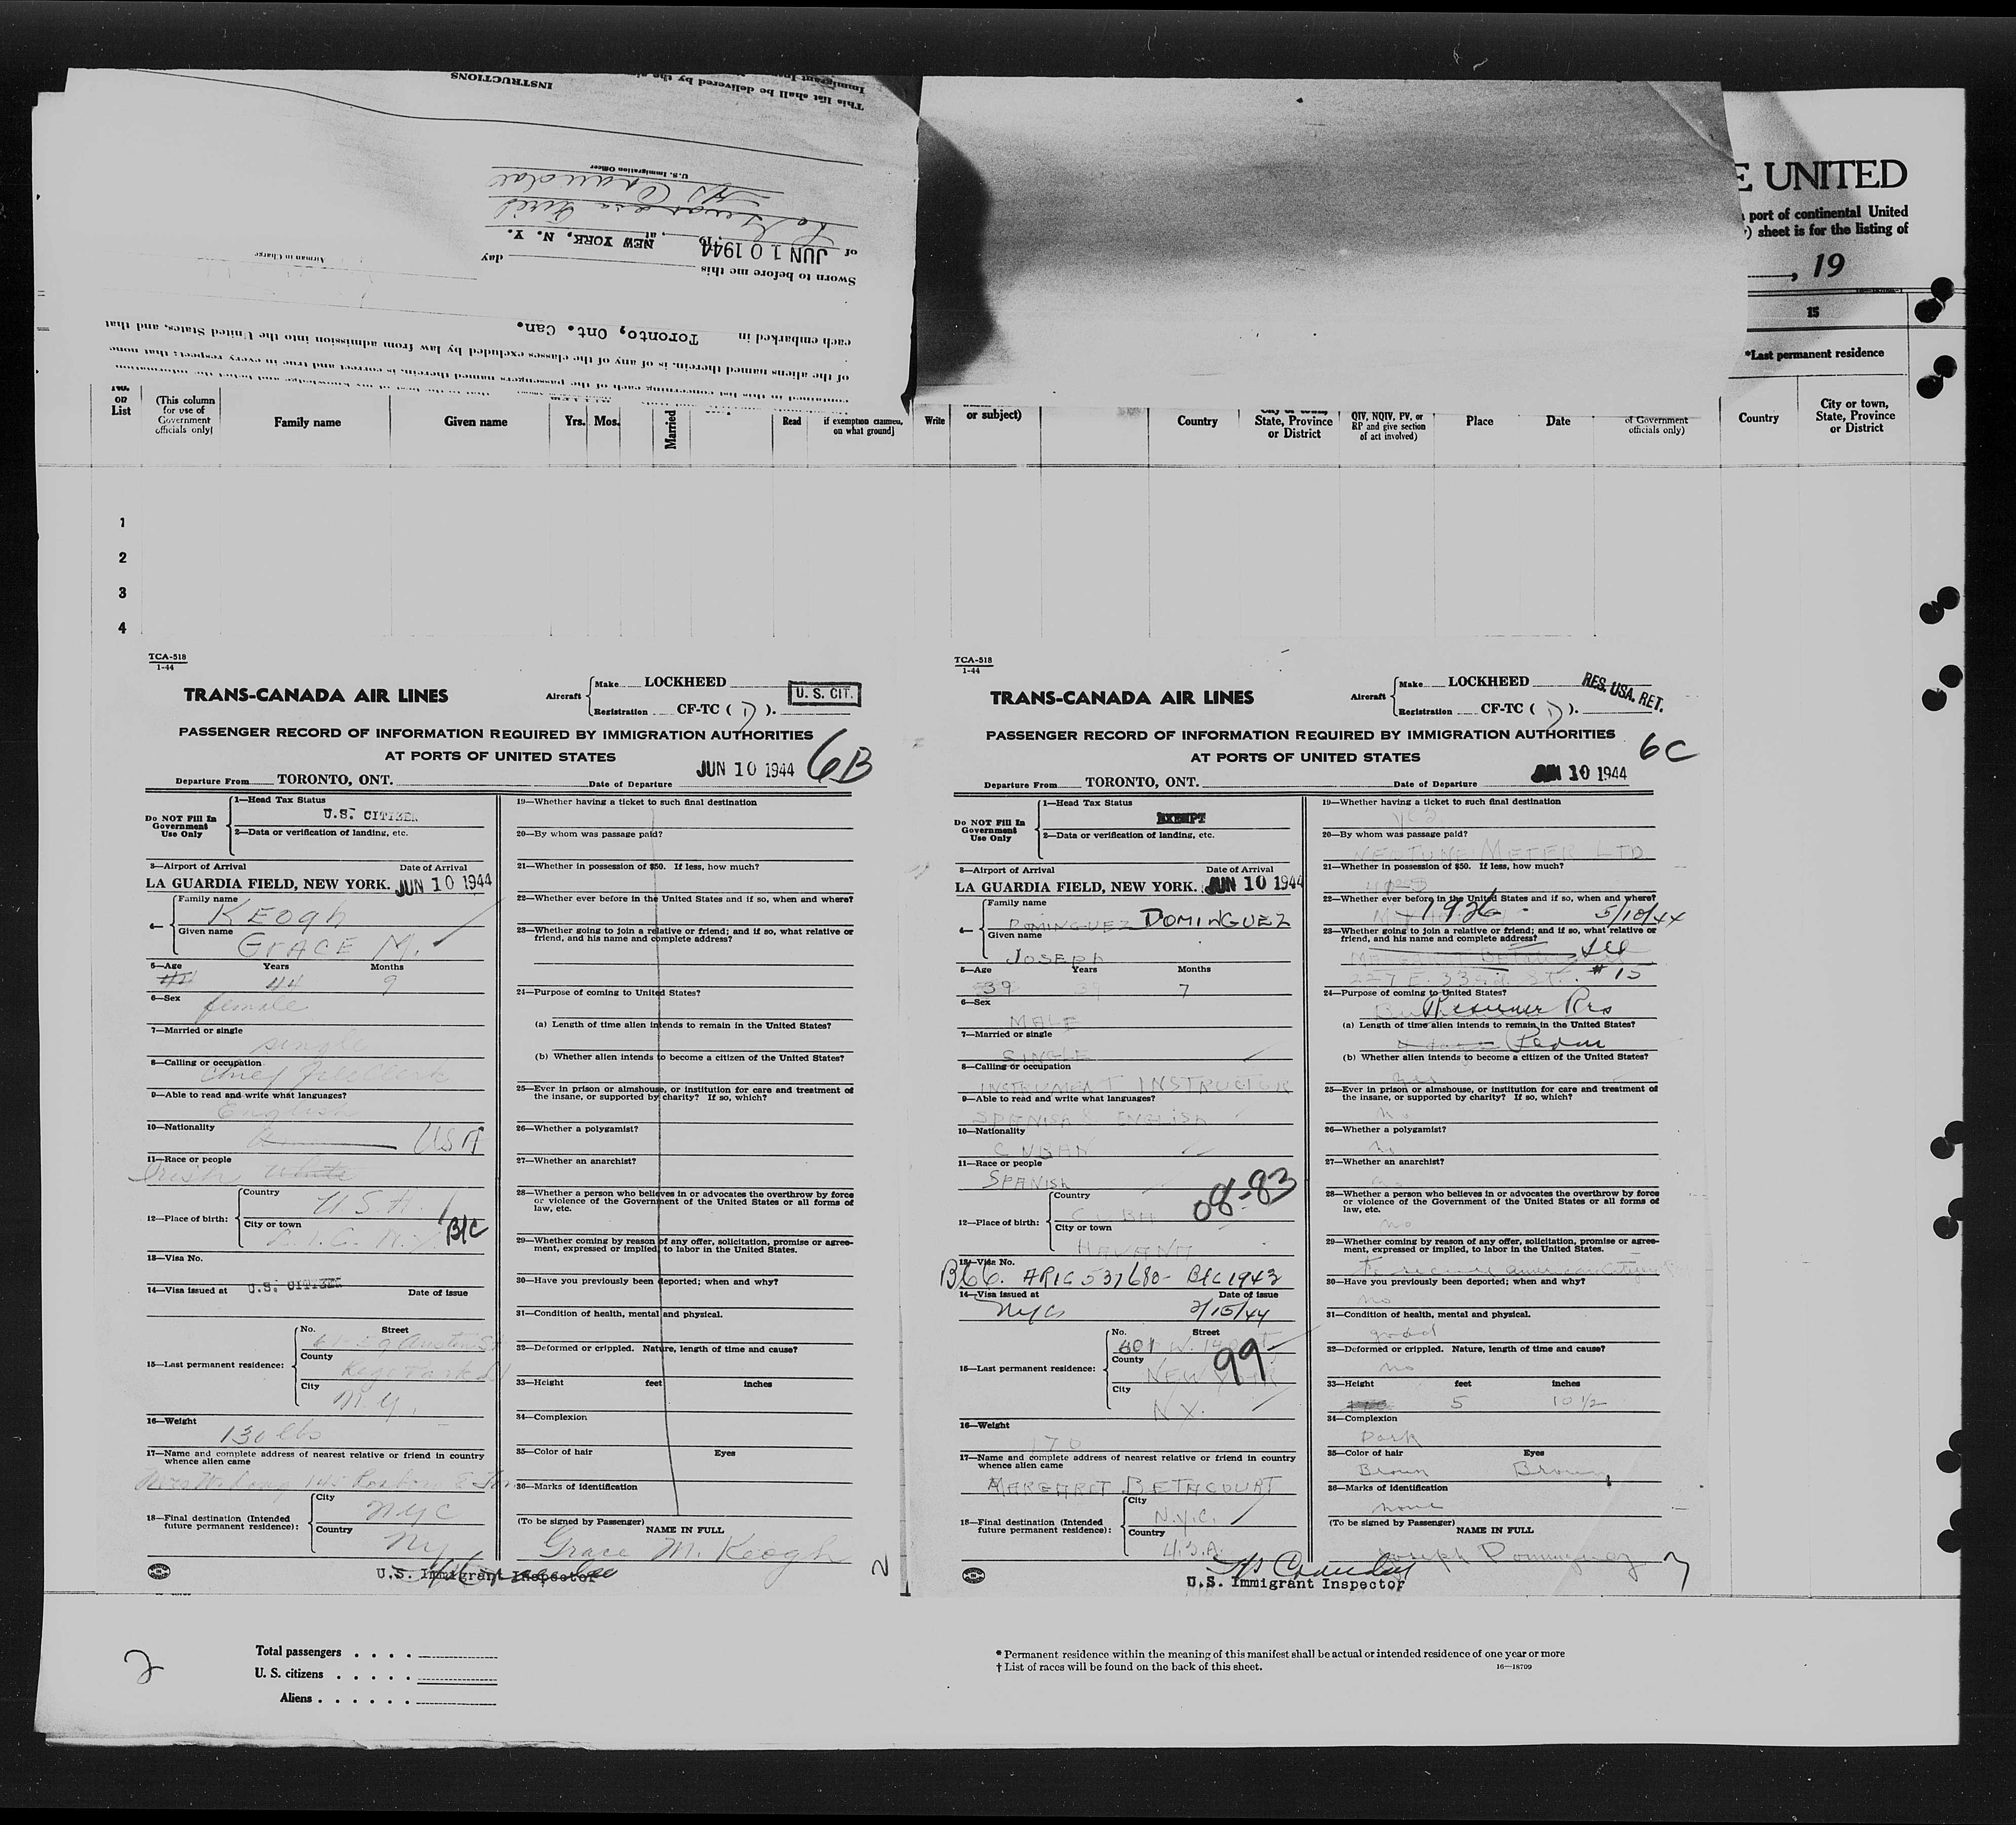 INSTRUCTIONS
This list shall be delivered by the
U.S. Immigration Officer
of JUN 10 1944, at NEW YORK, N. Y.
Sworn to before me this day
Airman in Charge
each embarked in Toronto, Ont. Can.
of the aliens named therein, is of any of the classes excluded by law from admission into the United States, and that
contained in this list concerning each of the passengers named therein, is correct and true in every respect; that none
E UNITED
port of continental United
) sheet is for the listing of
, 19
15
*Last permanent residence
No. on List
(This column for use of Government officials only)
Family name
Given name
Yrs.
Mos.
Married
Read
if exemption claimed, on what ground]
Write
or subject)
Country
City or town, State, Province or District
QIV, NQIV, PV, or RP and give section of act involved)
Place
Date
of Government officials only)
Country
City or town, State, Province or District
1
2
3
4
TCA-518
1-44
TRANS-CANADA AIR LINES
Aircraft
Make LOCKHEED
Registration CF-TC ( D ).
U. S. CIT.
PASSENGER RECORD OF INFORMATION REQUIRED BY IMMIGRATION AUTHORITIES
AT PORTS OF UNITED STATES
6B
Departure From TORONTO, ONT. Date of Departure JUN 10 1944
Do NOT Fill In Government Use Only
1—Head Tax Status
U.S. CITIZEN
2—Data or verification of landing, etc.
3—Airport of Arrival Date of Arrival
LA GUARDIA FIELD, NEW YORK. JUN 10 1944
4—
Family name
KEOgh
Given name
GRACE M.
5—Age Years Months
44 44 9
6—Sex
female
7—Married or single
single
8—Calling or occupation
Chief
9—Able to read and write what languages?
English
10—Nationality
USA
11—Race or people
Irish White
12—Place of birth:
Country
U.S.A.
City or town
B/C
13—Visa No.
14—Visa issued at U.S. CITIZEN Date of issue
15—Last permanent residence:
No. Street
Austin St
County
Rego Park
City
N.Y.
16—Weight
130 lbs
17—Name and complete address of nearest relative or friend in country
whence alien came
18—Final destination (Intended future permanent residence):
City
NYC
Country
NY
U.S. Immigrant Inspector
19—Whether having a ticket to such final destination
20—By whom was passage paid?
21—Whether in possession of $50. If less, how much?
22—Whether ever before in the United States and if so, when and where?
23—Whether going to join a relative or friend; and if so, what relative or
friend, and his name and complete address?
24—Purpose of coming to United States?
(a) Length of time alien intends to remain in the United States?
(b) Whether alien intends to become a citizen of the United States?
25—Ever in prison or almshouse, or institution for care and treatment of
the insane, or supported by charity? If so, which?
26—Whether a polygamist?
27—Whether an anarchist?
28—Whether a person who believes in or advocates the overthrow by force
or violence of the Government of the United States or all forms of
law, etc.
29—Whether coming by reason of any offer, solicitation, promise or agree-
ment, expressed or implied, to labor in the United States.
30—Have you previously been deported; when and why?
31—Condition of health, mental and physical.
32—Deformed or crippled. Nature, length of time and cause?
33—Height feet inches
34—Complexion
35—Color of hair Eyes
36—Marks of identification
(To be signed by Passenger)
NAME IN FULL
Grace M. Keogh
2
TCA-518
1-44
TRANS-CANADA AIR LINES
Aircraft
Make LOCKHEED
Registration CF-TC ( D ).
RES. USA. RET.
PASSENGER RECORD OF INFORMATION REQUIRED BY IMMIGRATION AUTHORITIES
AT PORTS OF UNITED STATES
6C
Departure From TORONTO, ONT. Date of Departure JUN 10 1944
Do NOT Fill In Government Use Only
1—Head Tax Status
EXEMPT
2—Data or verification of landing, etc.
3—Airport of Arrival Date of Arrival
LA GUARDIA FIELD, NEW YORK. JUN 10 1944
4—
Family name
DOMINGUEZ DOMINGUEZ
Given name
JOSEPH
5—Age Years Months
39 39 7
6—Sex
MALE
7—Married or single
SINGLE
8—Calling or occupation
INSTRUMENT INSTRUCTOR
9—Able to read and write what languages?
SPANISH & ENGLISH
10—Nationality
CUBAN
11—Race or people
SPANISH
08-83
12—Place of birth:
Country
CUBA
City or town
HAVANA
13—Visa No.
B66. ARIC 537680- B/C 1943
14—Visa issued at Date of issue
NYC 2/15/44
15—Last permanent residence:
No. Street
601 W.
County
NEW YORK
99
City
N.Y.
16—Weight
170
17—Name and complete address of nearest relative or friend in country
whence alien came
MARGARET BETACOURT
18—Final destination (Intended future permanent residence):
City
N.Y.C.
Country
U.S.A.
U.S. Immigrant Inspector
19—Whether having a ticket to such final destination
YES
20—By whom was passage paid?
NEPTUNE METER LTD
21—Whether in possession of $50. If less, how much?
22—Whether ever before in the United States and if so, when and where?
1926- 5/10/44
23—Whether going to join a relative or friend; and if so, what relative or
friend, and his name and complete address?
MARGARET BETACOURT See
227 E. 33rd St. #15
24—Purpose of coming to United States?
Resume Res
(a) Length of time alien intends to remain in the United States?
Perm
(b) Whether alien intends to become a citizen of the United States?
yes
25—Ever in prison or almshouse, or institution for care and treatment of
the insane, or supported by charity? If so, which?
no
26—Whether a polygamist?
no
27—Whether an anarchist?
28—Whether a person who believes in or advocates the overthrow by force
or violence of the Government of the United States or all forms of
law, etc.
no
29—Whether coming by reason of any offer, solicitation, promise or agree-
ment, expressed or implied, to labor in the United States.
30—Have you previously been deported; when and why?
no
31—Condition of health, mental and physical.
good
32—Deformed or crippled. Nature, length of time and cause?
no
33—Height feet inches
5 10 1/2
34—Complexion
Dark
35—Color of hair Eyes
Brown Brown
36—Marks of identification
none
(To be signed by Passenger)
NAME IN FULL
Joseph Dominguez
2
Total passengers
U. S. citizens
Aliens
* Permanent residence within the meaning of this manifest shall be actual or intended residence of one year or more
† List of races will be found on the back of this sheet.
16—18709